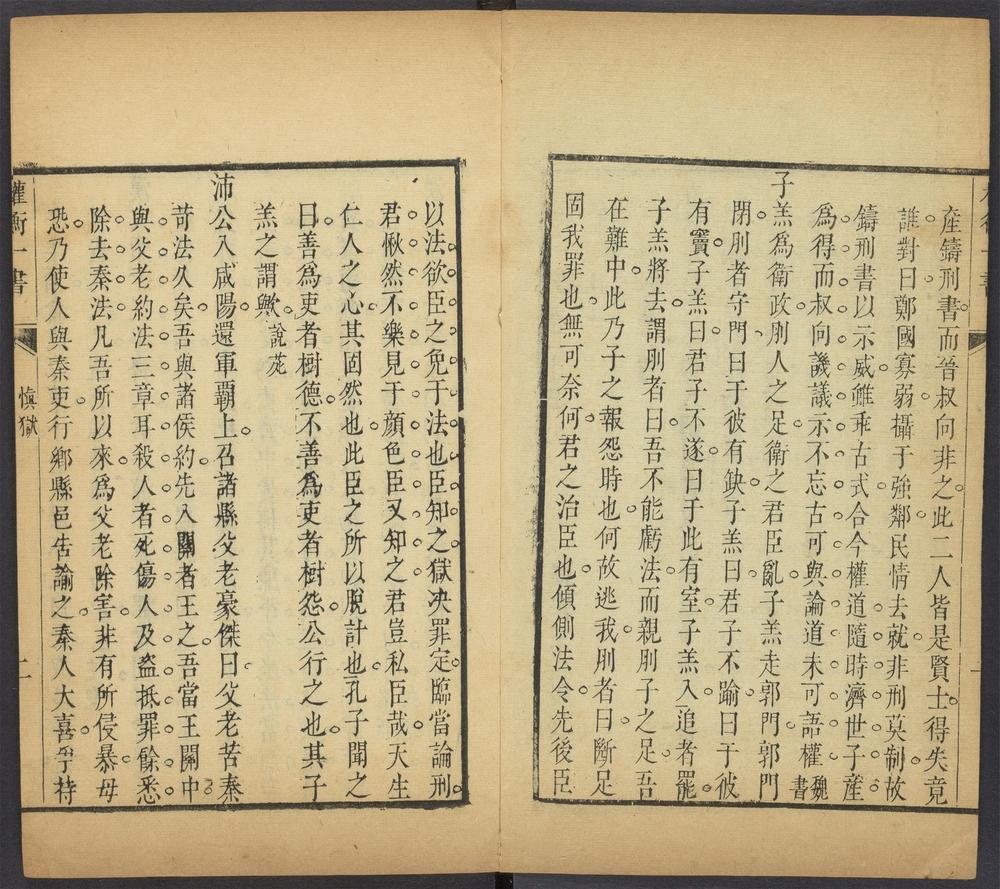 産鑄刑書而晉叔向非之此二人皆是賢士得失竟
誰對曰鄭國寡弱攝于強鄰民情去就非刑莫制故
鑄刑書以示威雖乖古式合今權道隨時濟世子産
爲得而叔向譏議示不忘古可與論道未可語權魏書
子羔爲衛政刖人之足衛之君臣亂子羔走郭門郭門
閉刖者守門曰于彼有缺子羔曰君子不踰曰于彼
有竇子羔曰君子不遂曰于此有室子羔入追者罷
子羔將去謂刖者曰吾不能虧法而親刖子之足吾
在難中此乃子之報怨時也何故逃我刖者曰斷足
固我罪也無可奈何君之治臣也傾側法令先後臣
以法欲臣之免于法也臣知之獄决罪定臨當論刑
君愀然不樂見于顔色臣又知之君豈私臣哉天生
仁人之心其固然也此臣之所以脫計也孔子聞之
曰善爲吏者樹德不善爲吏者樹怨公行之也其子
羔之謂歟說苑
沛公入咸陽還軍覇上召諸縣父老豪傑曰父老苦秦
苛法久矣吾與諸侯約先入關者王之吾當王關中
與父老約法三章耳殺人者死傷人及盜抵罪餘悉
除去秦法凡吾所以來爲父老除害非有所侵暴毋
恐乃使人與秦吏行鄉縣邑告諭之秦人大喜爭持
權衡一書
慎獄